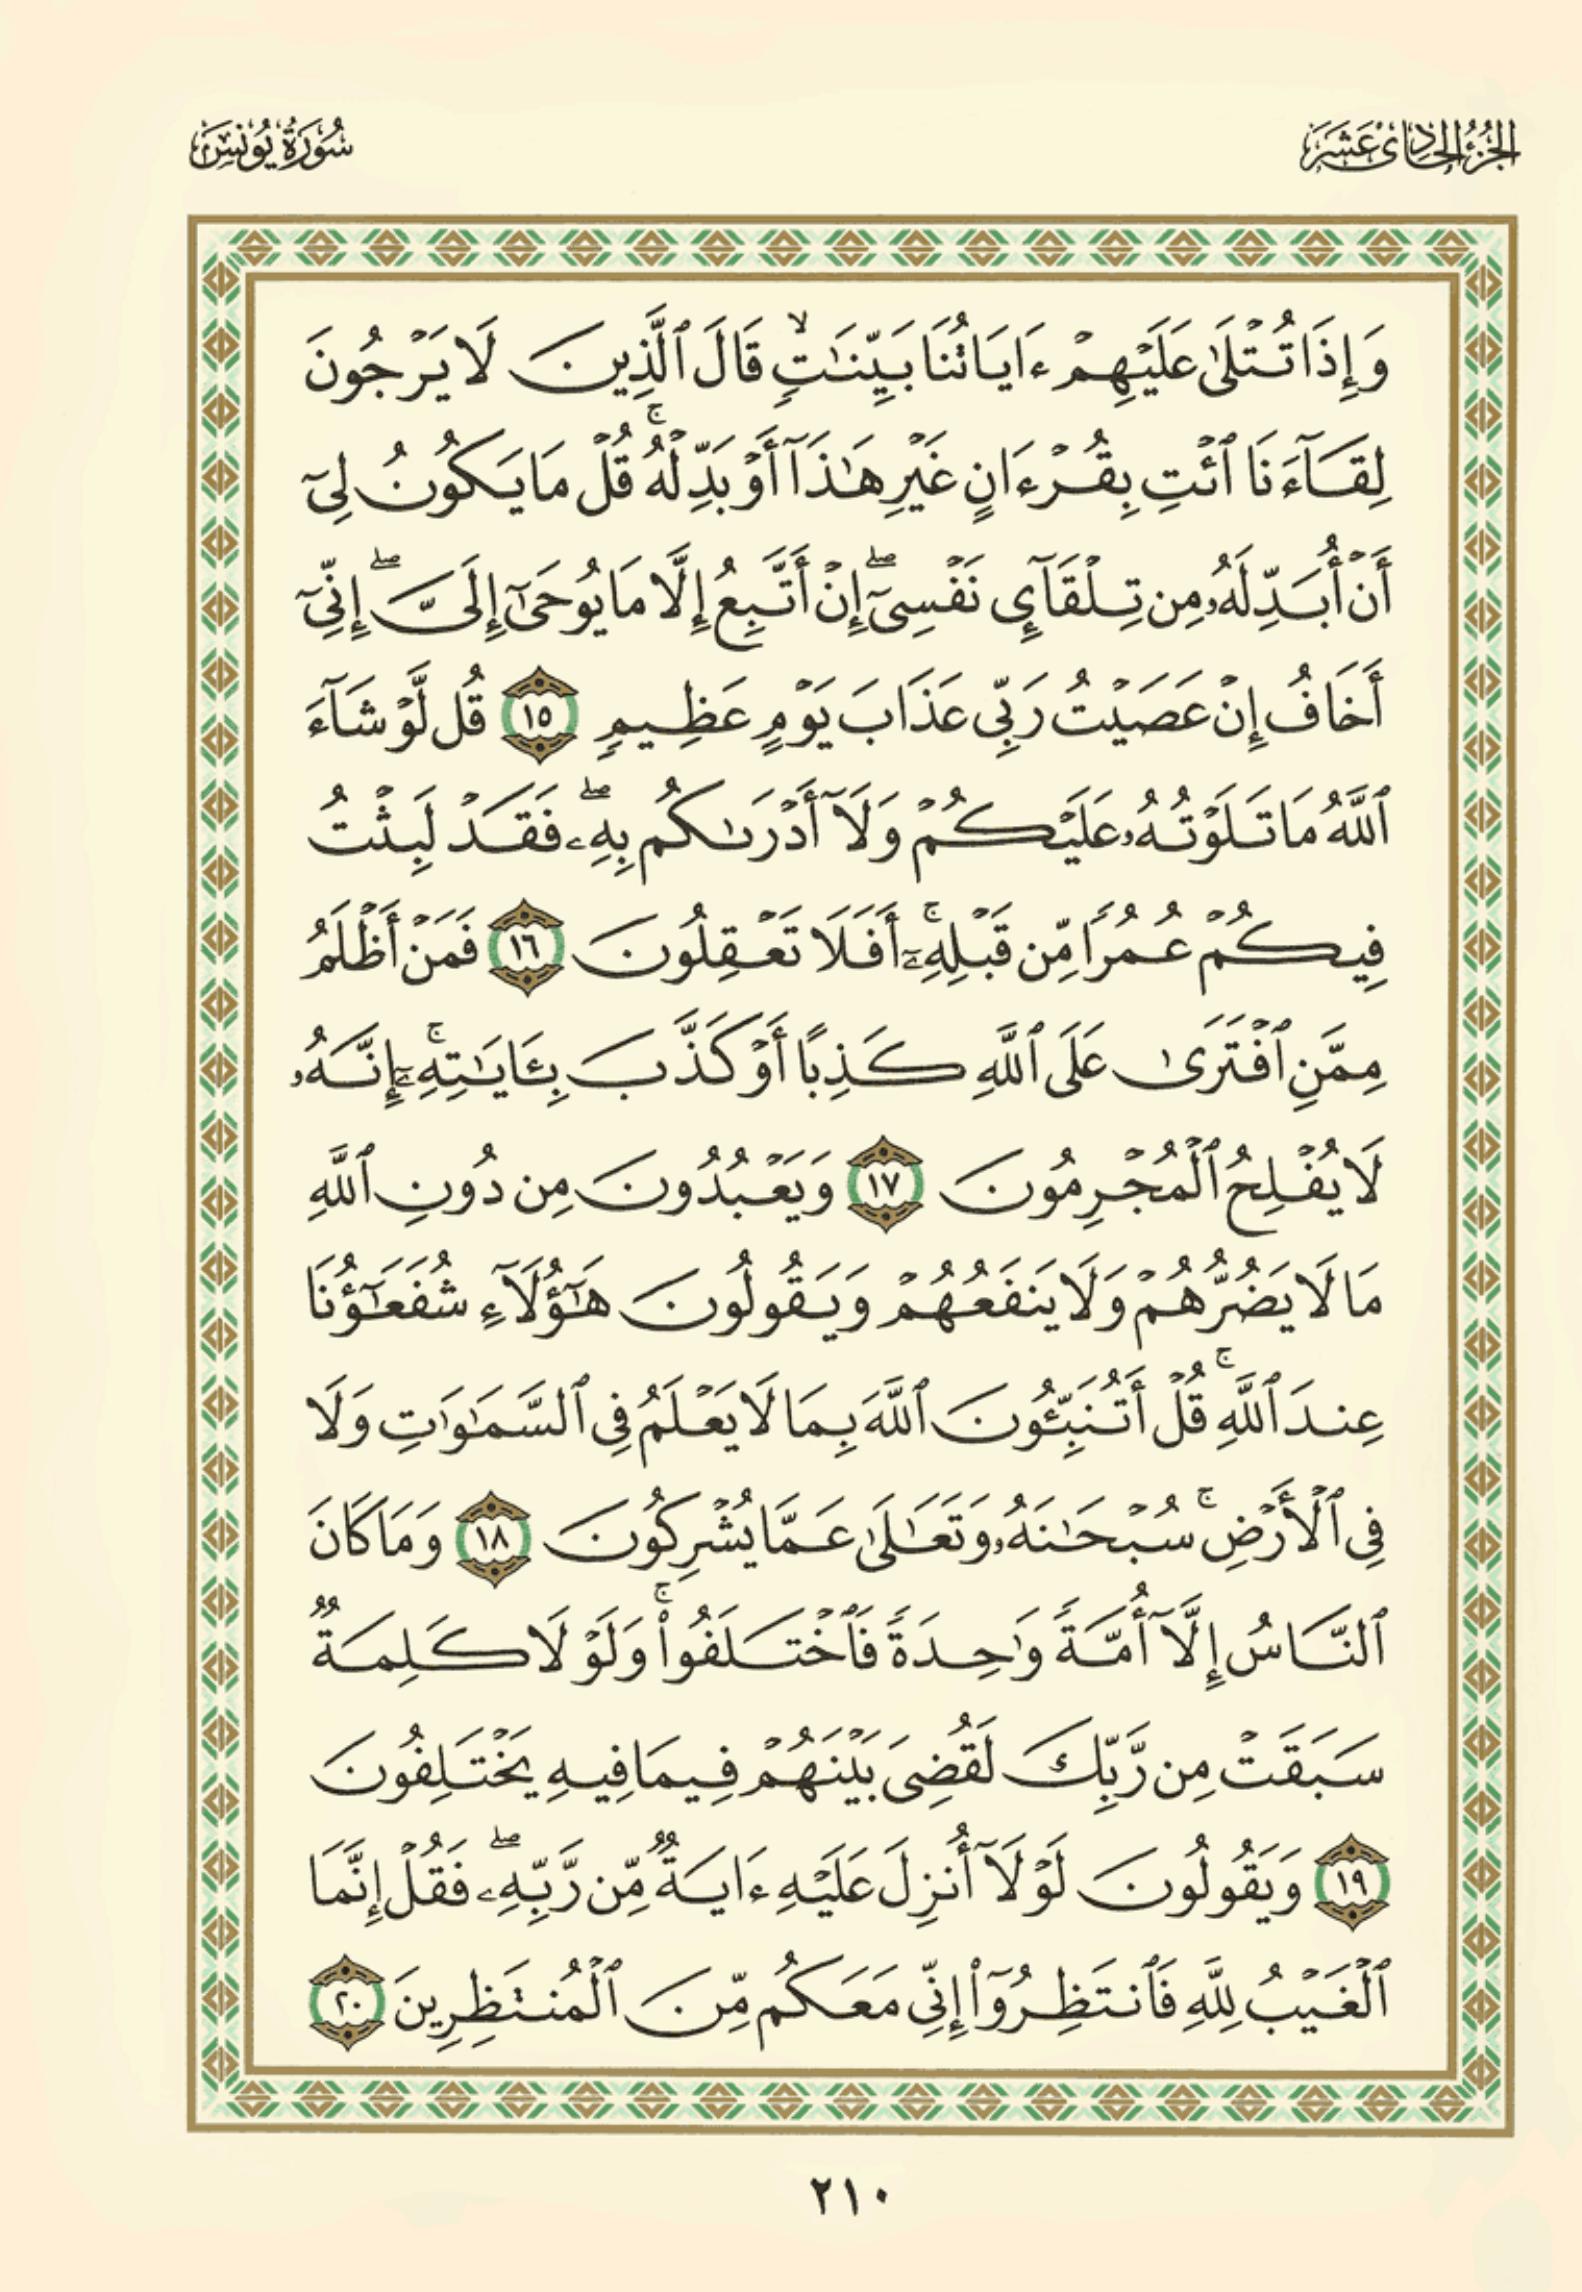 الجُزْءُ الحَادِي عَشَرَ
سُورَةُ يُونُسَ
وَإِذَا تُتْلَىٰ عَلَيْهِمْ ءَايَاتُنَا بَيِّنَٰتٍۙ قَالَ ٱلَّذِينَ لَا يَرْجُونَ
لِقَآءَنَا ٱئْتِ بِقُرْءَانٍ غَيْرِ هَٰذَآ أَوْ بَدِّلْهُۚ قُلْ مَا يَكُونُ لِىٓ
أَنْ أُبَدِّلَهُۥ مِن تِلْقَآئِ نَفْسِىٓۖ إِنْ أَتَّبِعُ إِلَّا مَا يُوحَىٰٓ إِلَىَّۖ إِنِّىٓ
أَخَافُ إِنْ عَصَيْتُ رَبِّى عَذَابَ يَوْمٍ عَظِيمٍ ١٥ قُل لَّوْ شَآءَ
ٱللَّهُ مَا تَلَوْتُهُۥ عَلَيْكُمْ وَلَآ أَدْرَىٰكُم بِهِۦۖ فَقَدْ لَبِثْتُ
فِيكُمْ عُمُرًا مِّن قَبْلِهِۦٓۚ أَفَلَا تَعْقِلُونَ ١٦ فَمَنْ أَظْلَمُ
مِمَّنِ ٱفْتَرَىٰ عَلَى ٱللَّهِ كَذِبًا أَوْ كَذَّبَ بِـَٔايَٰتِهِۦٓۚ إِنَّهُۥ
لَا يُفْلِحُ ٱلْمُجْرِمُونَ ١٧ وَيَعْبُدُونَ مِن دُونِ ٱللَّهِ
مَا لَا يَضُرُّهُمْ وَلَا يَنفَعُهُمْ وَيَقُولُونَ هَٰٓؤُلَآءِ شُفَعَٰٓؤُنَا
عِندَ ٱللَّهِۚ قُلْ أَتُنَبِّـُٔونَ ٱللَّهَ بِمَا لَا يَعْلَمُ فِى ٱلسَّمَٰوَٰتِ وَلَا
فِى ٱلْأَرْضِۚ سُبْحَٰنَهُۥ وَتَعَٰلَىٰ عَمَّا يُشْرِكُونَ ١٨ وَمَا كَانَ
ٱلنَّاسُ إِلَّآ أُمَّةً وَٰحِدَةً فَٱخْتَلَفُوا۟ۚ وَلَوْلَا كَلِمَةٌ
سَبَقَتْ مِن رَّبِّكَ لَقُضِىَ بَيْنَهُمْ فِيمَا فِيهِ يَخْتَلِفُونَ
١٩ وَيَقُولُونَ لَوْلَآ أُنزِلَ عَلَيْهِ ءَايَةٌ مِّن رَّبِّهِۦۖ فَقُلْ إِنَّمَا
ٱلْغَيْبُ لِلَّهِ فَٱنتَظِرُوٓا۟ إِنِّى مَعَكُم مِّنَ ٱلْمُنتَظِرِينَ ٢٠
٢١٠